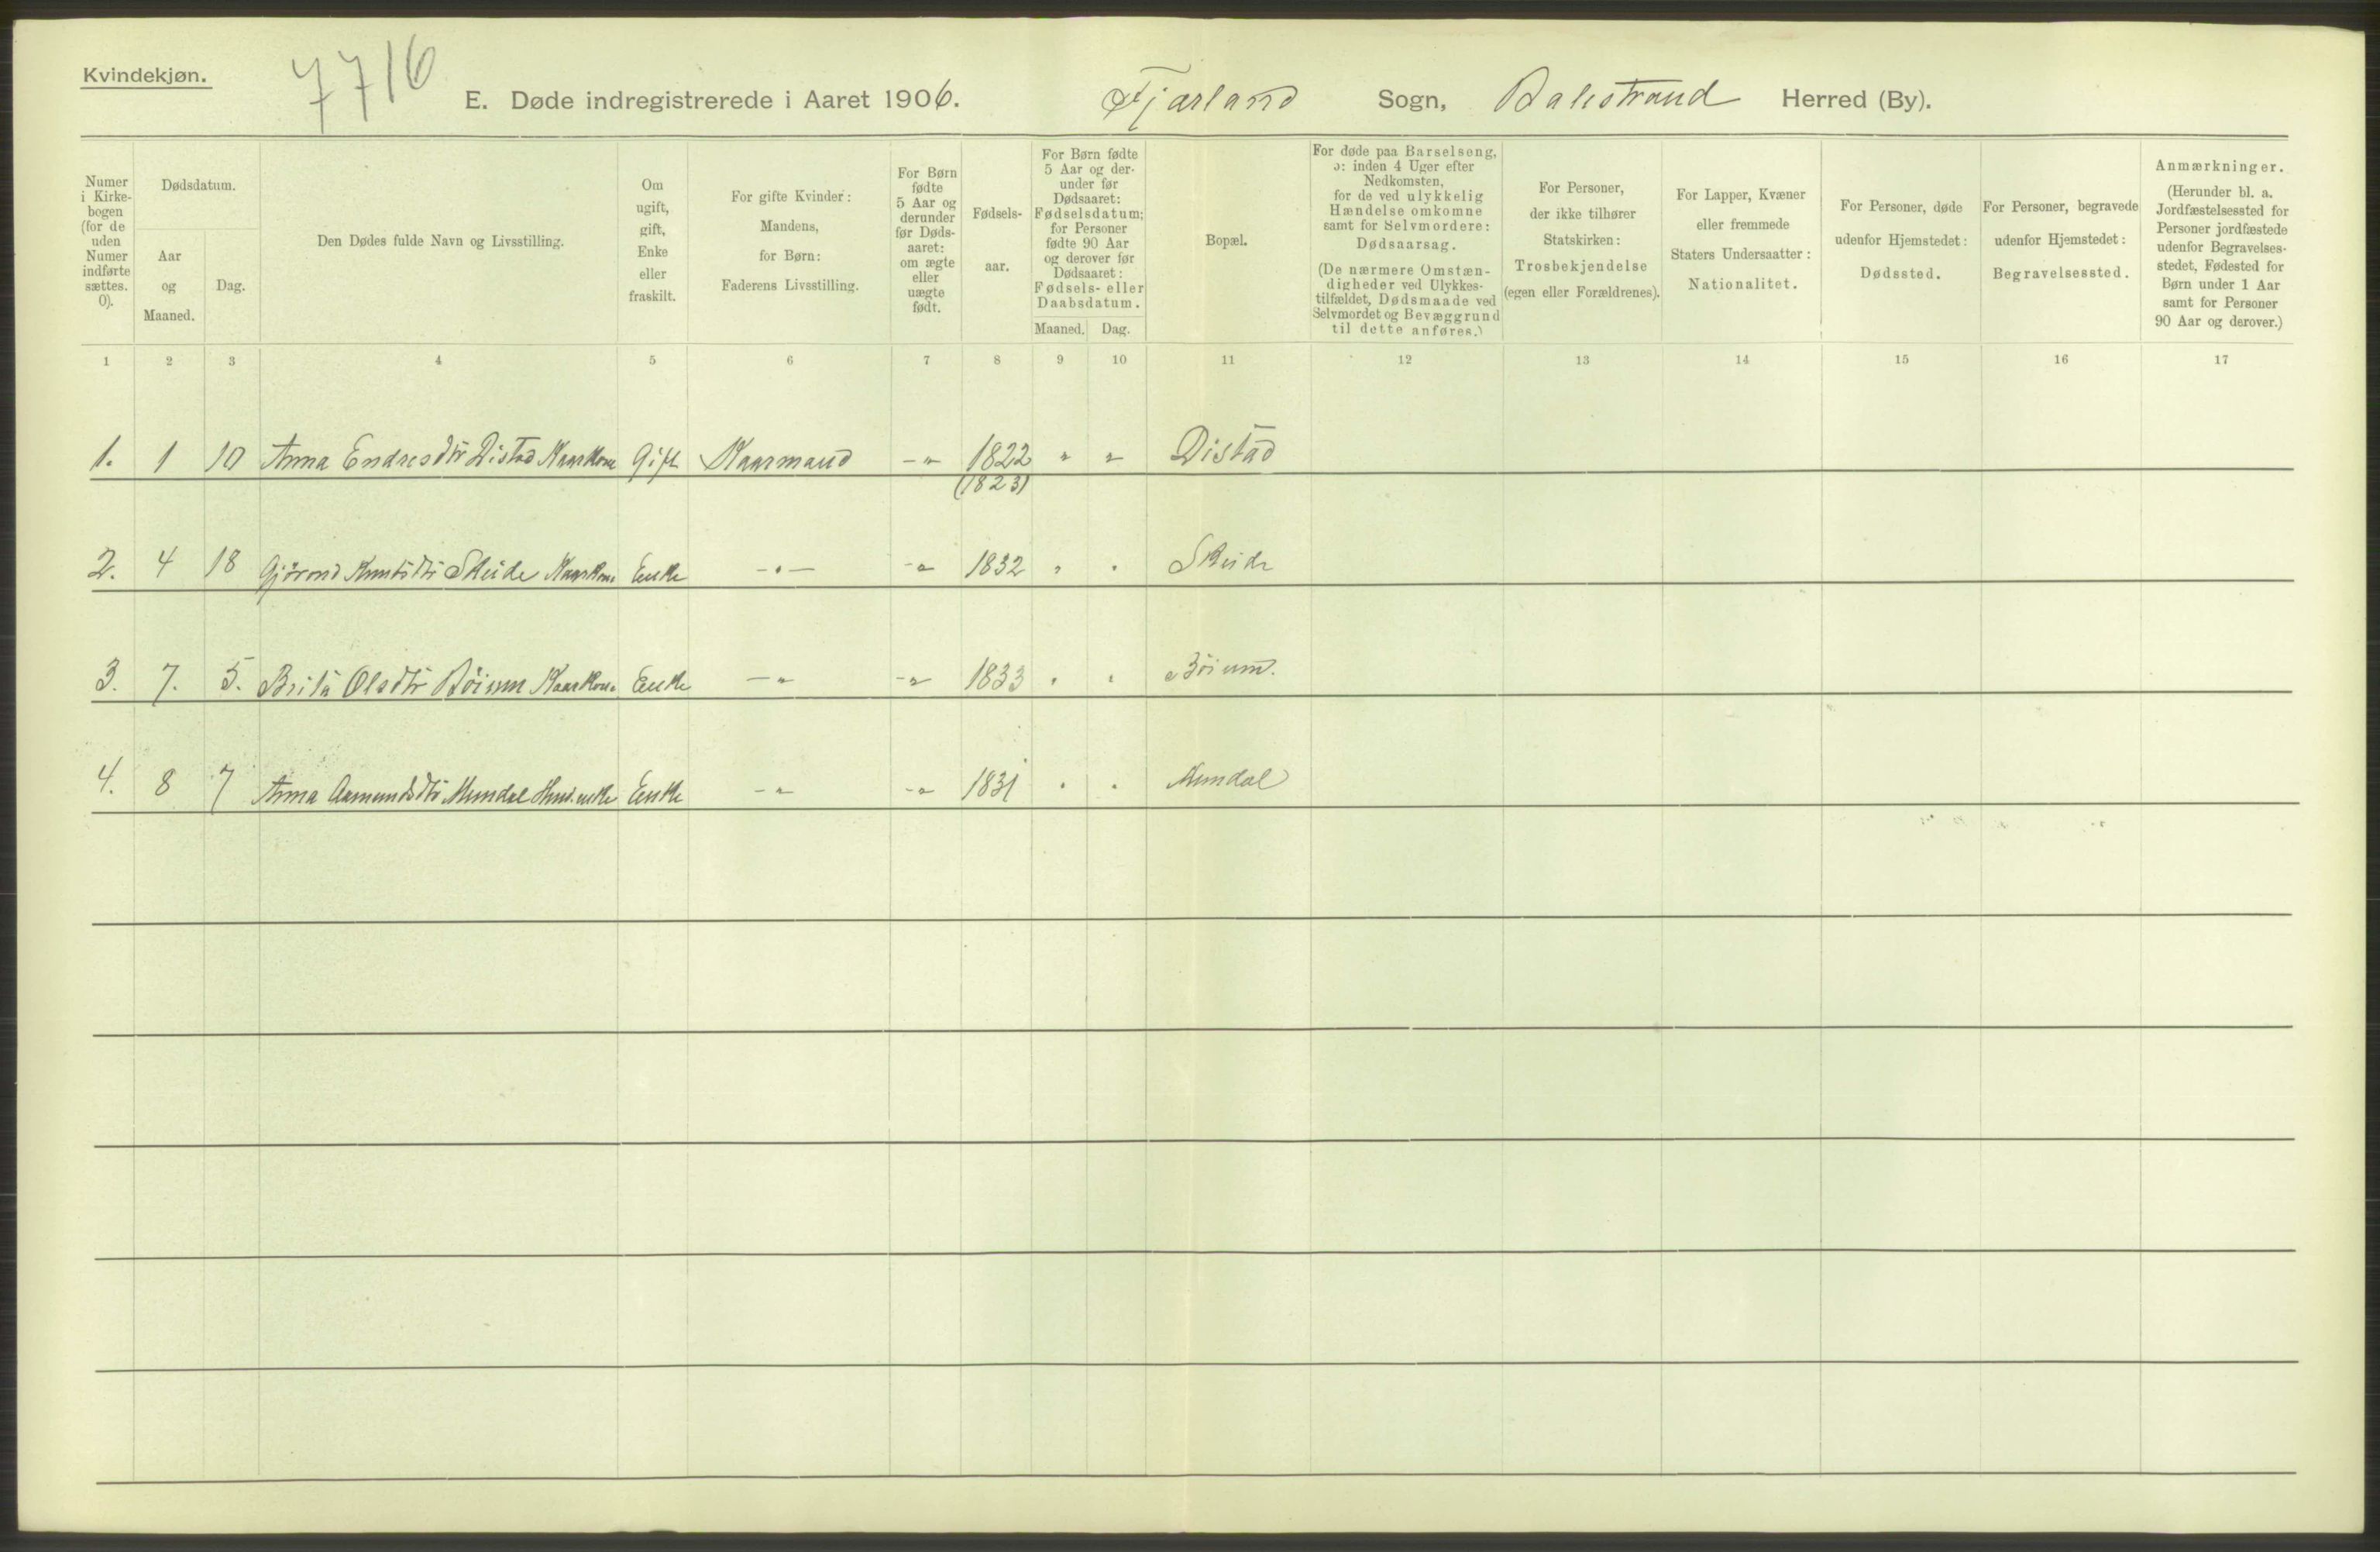 Kvindekjøn.
7716
E. Døde indregistrerede i Aaret 1906. Fjærland Sogn, Balestrand Herred (By).
Numer
i Kirke-
bogen
(for de
uden
Numer
indførte
sættes.
0).
Dødsdatum.
Aar
og
Maaned.
Dag.
Den Dødes fulde Navn og Livsstilling.
Om
ugift,
gift,
Enke
eller
fraskilt.
For gifte Kvinder:
Mandens,
for Børn:
Faderens Livsstilling.
For Børn
fødte
5 Aar og
derunder
før Døds-
aaret:
om ægte
eller
uægte
født.
Fødsels-
aar.
For Børn fødte
5 Aar og der-
under før
Dødsaaret:
Fødselsdatum;
for Personer
fødte 90 Aar
og derover før
Dødsaaret:
Fødsels- eller
Daabsdatum.
Maaned. Dag.
Bopæl.
For døde paa Barselseng,
ɔ: inden 4 Uger efter
Nedkomsten,
for de ved ulykkelig
Hændelse omkomne
samt for Selvmordere:
Dødsaarsag.
(De nærmere Omstæn-
digheder ved Ulykkes-
tilfældet, Dødsmaade ved
Selvmordet og Bevæggrund
til dette anføres.)
For Personer,
der ikke tilhører
Statskirken:
Trosbekjendelse
(egen eller Forældrenes).
For Lapper, Kvæner
eller fremmede
Staters Undersaatter:
Nationalitet.
For Personer, døde
udenfor Hjemstedet:
Dødssted.
For Personer, begravede
udenfor Hjemstedet:
Begravelsessted.
Anmærkninger.
(Herunder bl. a.
Jordfæstelsessted for
Personer jordfæstede
udenfor Begravelses-
stedet, Fødested for
Børn under 1 Aar
samt for Personer
90 Aar og derover.)
1 2 3 4 5 6 7 8 9 10 11 12 13 14 15 16 17
1. 1 10 Anna Endresdtr Distad Kaarkone Gift Kaarmand -"- 1822 " " Distad
(1823)
2. 4 18 Knutsdtr Skeide Kaarkone Enke -"- -" 1832 " " Skeide
3. 7. 5. Brita Olsdtr Böium Kaarkone Enke -" -" 1833 " " Böium.
4. 8 7 Anna Aamundsdtr Mundal Enke -" -" 1831 " " Mundal